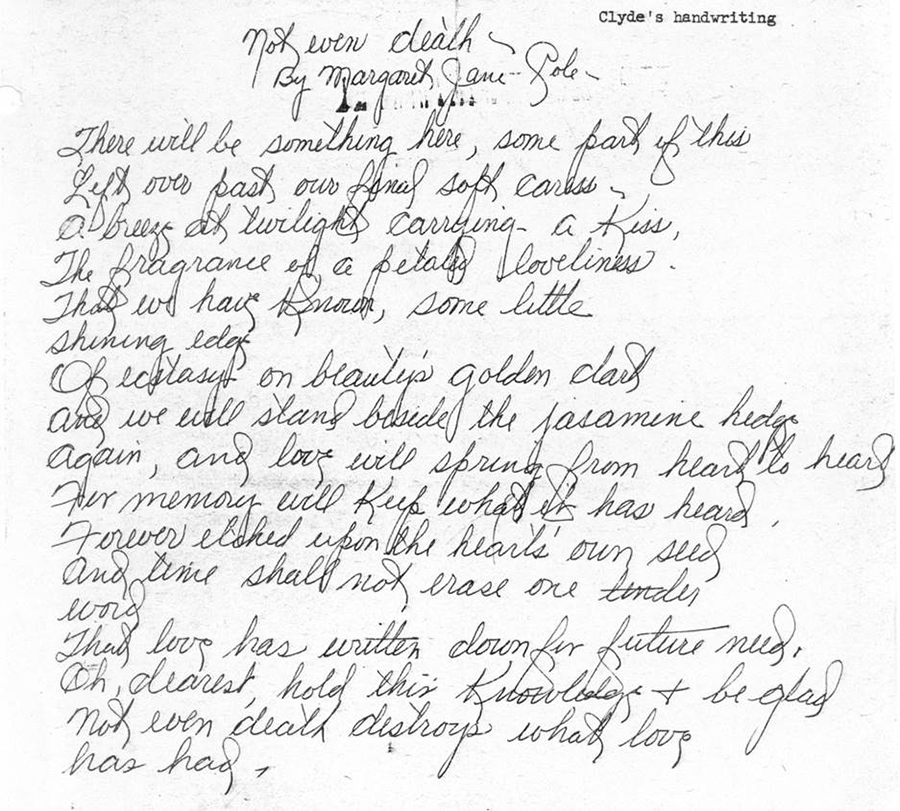 Clyde's handwriting
Not even death
By Margaret Jane Pole
There will be something here, some part of this
Left over past our final soft caress
A breeze at twilight carrying a kiss,
The fragrance of a petaled loveliness.
That we have known, some little
shining edge
Of ecstasy on beauty's golden dart
And we will stand beside the jasamine hedge
Again, and love will spring from heart to heart
For memory will keep what it has heard,
Forever etched upon the hearts' own seed
And time shall not erase one tender
word
That love has written down for future need.
Oh, dearest, hold this knowledge + be glad
Not even death destroys what love
has had.